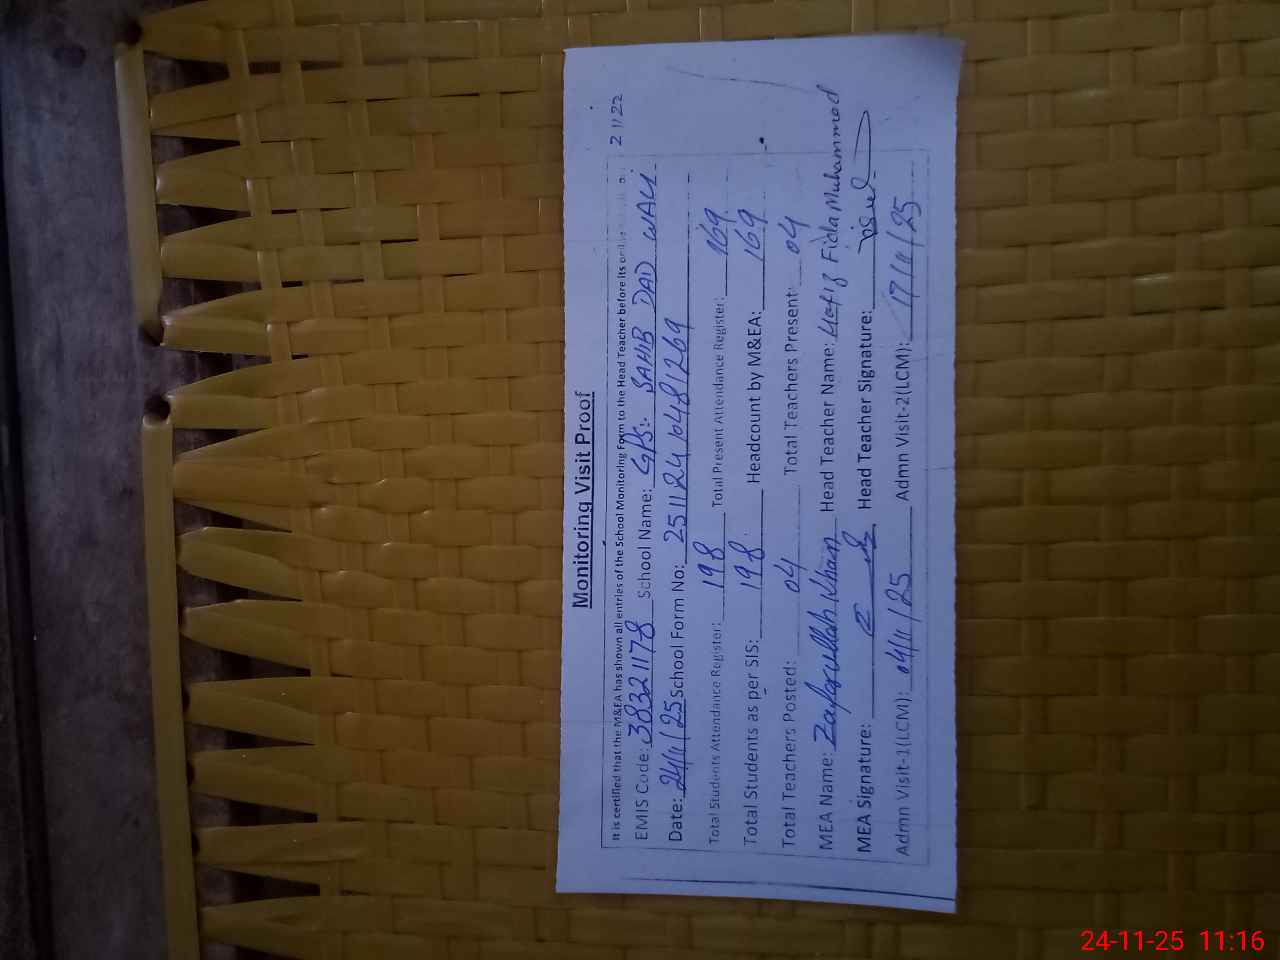 Monitoring Visit Proof
It is certified that the M&EA has shown all entries of the School Monitoring Form to the Head Teacher before its
21122
EMIS Code: 38321178 School Name: GPS:- SAHIB DAD WALI
Date: 24/11/25 School Form No: 25112410481269
Total Students Attendance Register: 198 Total Present Attendance Register: 169
Total Students as per SIS: 198 Headcount by M&EA: 169
Total Teachers Posted: 04 Total Teachers Present: 04
MEA Name: Zafarullah Khan Head Teacher Name: Hafiz Fida Muhammad
MEA Signature: Head Teacher Signature:
Admn Visit-1(LCM): 04/11/25 Admn Visit-2(LCM): 17/11/25
24-11-25 11:16